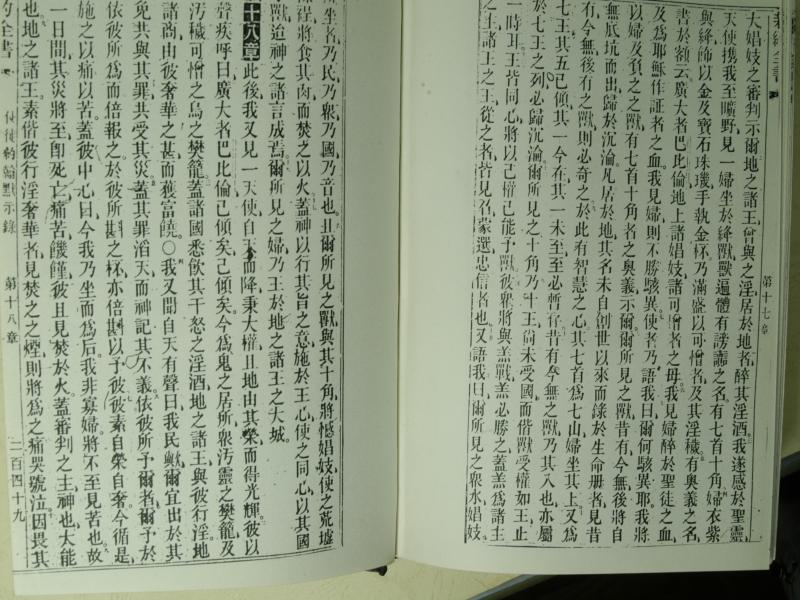 大娼妓之審判示爾地之諸王曾與之淫居於地者醉其淫酒我遂感於聖靈
天使攜我至曠野見一婦坐於絳獸獸遍體有謗讟之名有七首十角婦衣紫
與絳飾以金及寶石珠璣手執金杯乃滿盛以可憎者及其淫穢有奧義之名
書於額云廣大者巴比倫地上諸娼妓諸可憎者之母我見婦醉於聖徒之血
及為耶穌作証者之血我見婦則不勝駭異使者乃語我曰爾何駭異耶我將
以婦及負之之獸有七首十角者之奧義示爾爾所見之獸昔有今無後將自
無底坑而出歸於沉淪凡居於地其名未自創世以來而錄於生命冊者見昔
有今無後有之獸則必奇之於此有智慧之心其七首為七山婦坐其上又為
七王其五已傾其一今在其一未至至必暫存昔有今無之獸乃其八也亦屬
於七王之列必歸沉淪爾所見之十角乃十王尚未受國而偕獸受權如王止
一時耳王皆同心將以己權己能予獸彼眾將與羔戰羔必勝之蓋羔為諸主
之主諸王之王從之者皆見召蒙選忠信者也又語我曰爾所見之眾水娼妓
第十七章
所坐者乃民乃眾乃國乃音也且爾所見之獸與其十角將憾娼妓使之荒墟
裸裎將食其肉而焚之以火蓋神以行其旨之意施於王心使之同心以其國
予獸迨神之諸言成焉爾所見之婦乃王於地之諸王之大城
第十八章此後我又見一天使自天而降秉大權且地由其榮而得光輝彼以
聲疾呼曰廣大者巴比倫已傾矣已傾矣今為鬼之居所眾污靈之樊籠及
污穢可憎之鳥之樊籠蓋諸國悉飲其干怒之淫酒地之諸王與彼行淫地
諸商由彼奢華之甚而獲富饒○我又聞自天有聲曰我民歟爾宜出於其
免共與其罪共受其災蓋其罪滔天而神記其不義依彼所予爾者爾予於
依彼所為而倍報之於彼所斟之杯亦倍斟以予彼彼素自榮自奢今循是
施之以痛以苦蓋彼中心曰今我乃坐而為后我非寡婦將不至見苦也故
一日間其災將至卽死亡痛苦饑饉彼且見焚於火蓋審判之主神也大能
也地之諸王素偕彼行淫奢華者見焚之之煙則將為之痛哭號泣因畏其
約全書 使徒約翰默示錄 第十八章 二百四十九